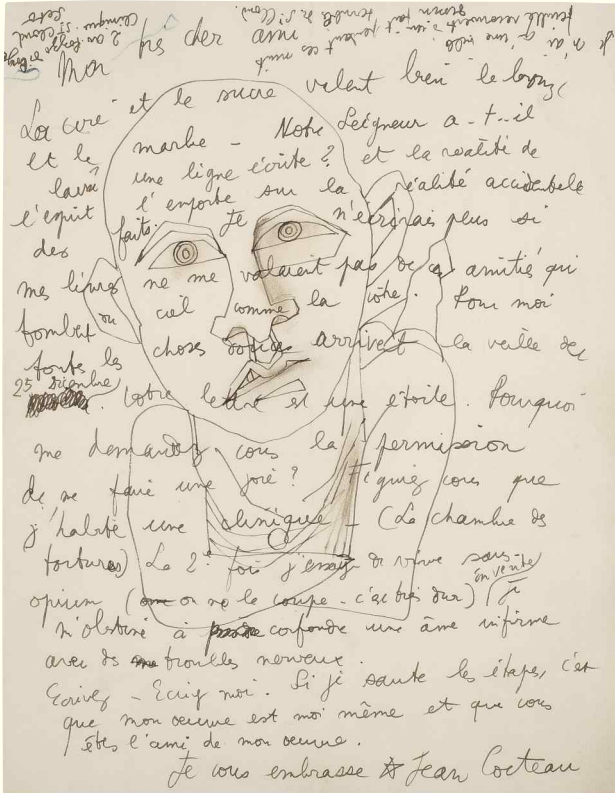 Mon très cher ami
La cire et le sucre valent bien le bronze
et le marbre - Notre Seigneur a-t-il
laissé une ligne écrite? et la réalité de
l'esprit l'emporte sur la réalité accidentelle
des faits. Je n'écrirais plus si
mes livres ne me valaient pas de ces amitiés qui
tombent du ciel comme la vôtre. Pour moi
toutes les choses arrivent la veille du
25 décembre. Votre lettre est une étoile. Pourquoi
me demandez vous la permission
de me faire une joie? Figurez vous que
j'habite une clinique - (La chambre des
tortures) La 2e fois j'essaye de vivre sans
opium (on ne le coupe - c'est très dur) (je
m'obstine à confondre une âme infirme
avec des troubles nerveux.
Ecrivez - Ecrivez moi. Si je saute les étapes, c'est
que mon oeuvre est moi même et que vous
êtes l'ami de mon oeuvre.
Je vous embrasse Jean Cocteau
Clinique St Cloud
2 av